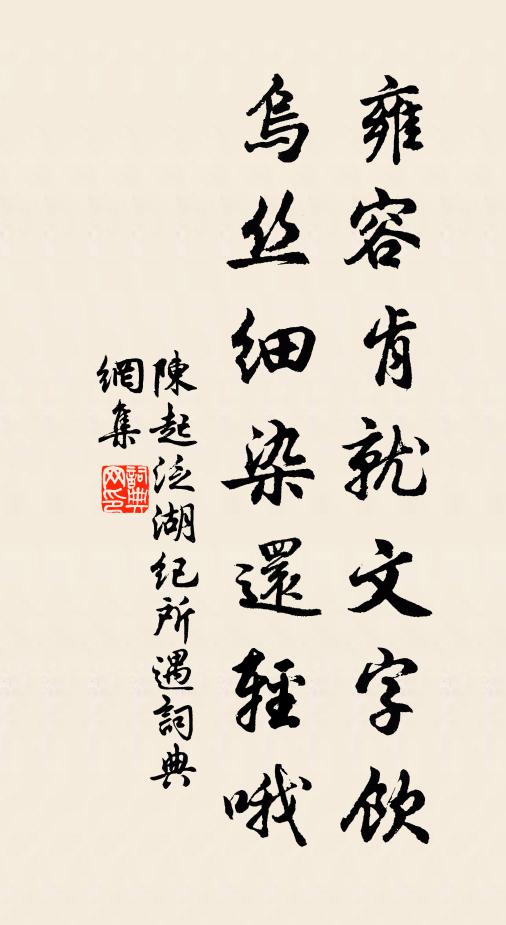 雍容肯就文字飲
烏丝細染還輕哦
陳起泛湖紀所遇詞典
網集
詞典網印